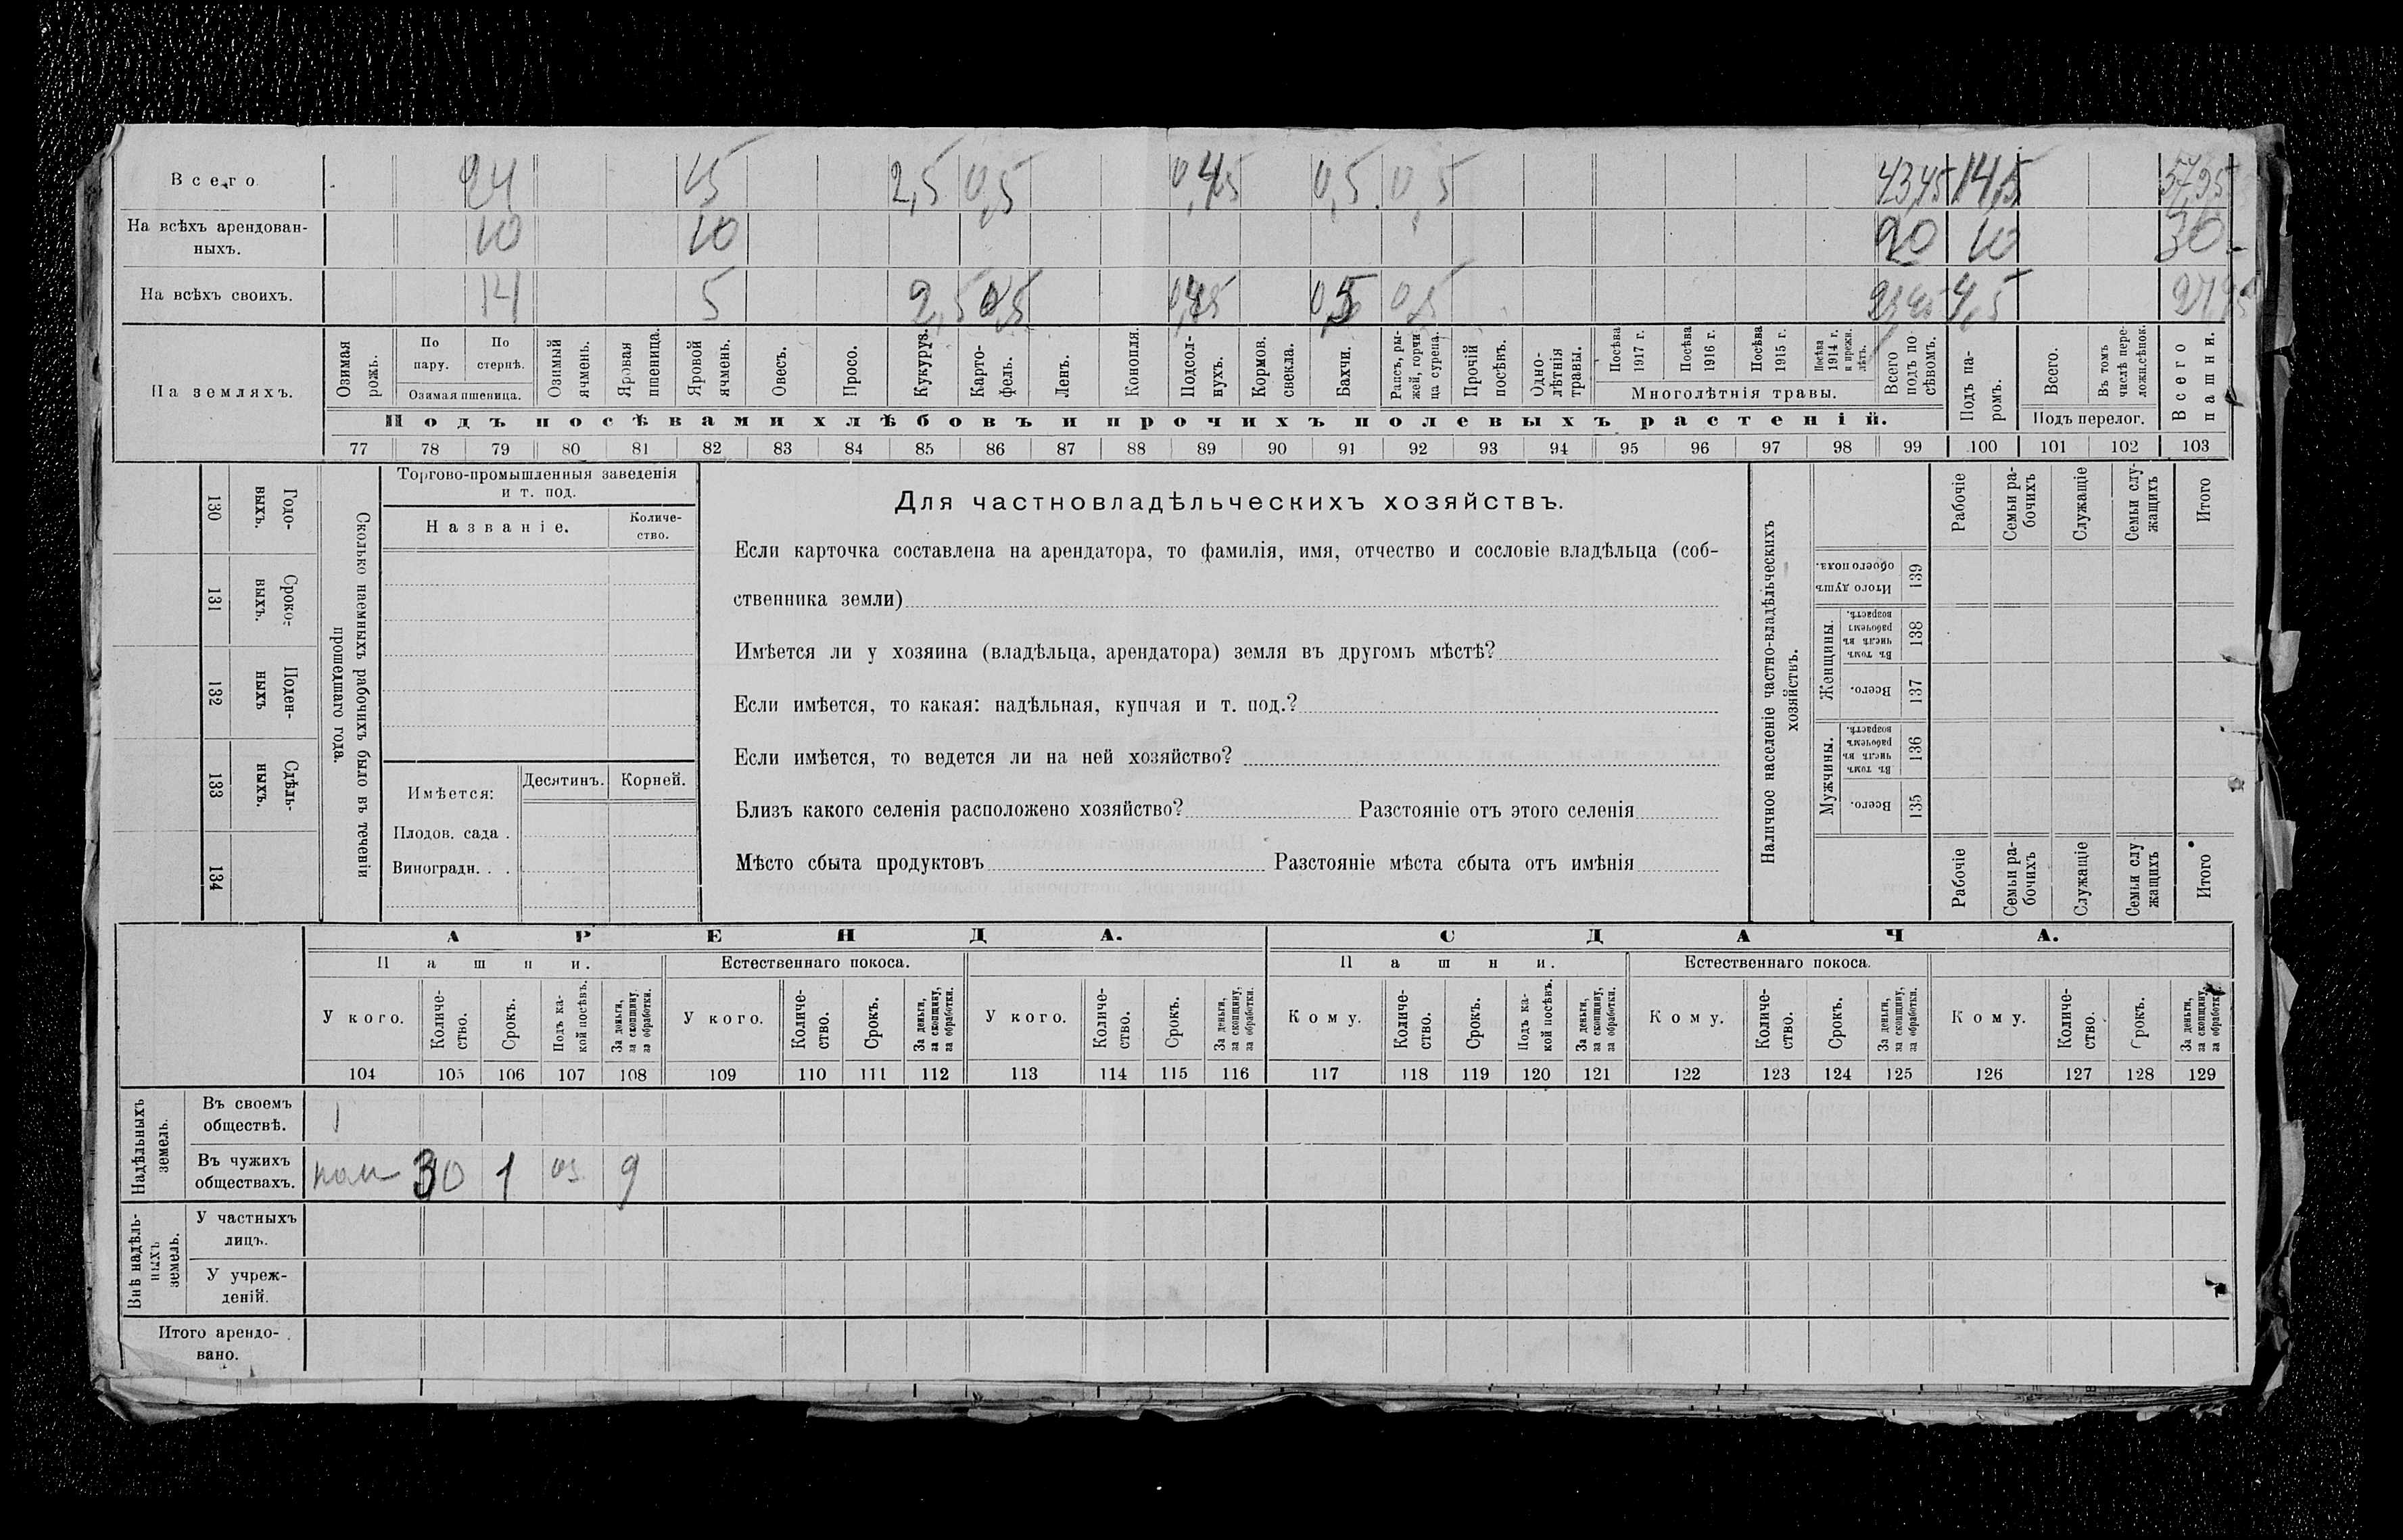 Всего. 24 15 2,5 0,5 0,45 0,5 0,5 43,45 14,5 57,95
На всѣхъ арендован-
ныхъ. 10 10 20 10 30
На всѣхъ своихъ. 14 5 2,5 0,5 0,45 0,5 0,5 4,5
На земляхъ.
Озимая рожь.
По пару.
По стернѣ.
Озимая пшеница.
Озимый ячмень.
Яровая пшеница.
Яровой ячмень.
Овесъ.
Просо.
Кукуруз.
Карто-
фель.
Ленъ.
Конопля.
Подсол-
нухъ.
Кормов. свекла.
Бахчи.
Рапсъ, ры-
жей, горчи-
ца сурепа.
Прочій посѣвъ.
Одно-
лѣтнія травы.
Посѣва 1917 г.
Посѣва 1916 г.
Посѣва 1915 г.
Посѣва 1914 г. и прежн. лѣтъ.
Многолѣтнія травы.
Всего подъ по-
сѣвомъ.
Подъ па-
ромъ.
Всего.
Въ томъ числѣ пере-
ложн.сѣнок.
Подъ перелог.
Всего пашни.
Подъ посѣвами хлѣбовъ и прочихъ полевыхъ растеній.
77 78 79 80 81 82 83 84 85 86 87 88 89 90 91 92 93 94 95 96 97 98 99 100 101 102 103
130 Годо-
выхъ.
131 Сроко-
выхъ.
132 Поден-
ныхъ
133 Сдѣль-
ныхъ.
134
Сколько наемныхъ рабочихъ было въ теченіи
прошедшаго года.
Торгово-промышленныя заведенія
и т. под.
Названіе.
Количе-
ство.
Имѣется:
Десятинъ.
Корней.
Плодов. сада .
Виноградн. . .
Для частновладѣльческихъ хозяйствъ.
Если карточка составлена на арендатора, то фамилія, имя, отчество и сословіе владѣльца (соб-
ственника земли)
Имѣется ли у хозяина (владѣльца, арендатора) земля въ другомъ мѣстѣ?
Если имѣется, то какая: надѣльная, купчая и т. под.?
Если имѣется, то ведется ли на ней хозяйство?
Близъ какого селенія расположено хозяйство? Разстояніе отъ этого селенія
Мѣсто сбыта продуктовъ Разстояніе мѣста сбыта отъ имѣнія
Наличное населеніе частно-владѣльческихъ
хозяйствъ.
Рабочіе
Семьи ра-
бочихъ
Служащіе
Семьи слу-
жащихъ
Итого
Итого душъ обоего пола. 139
Женщины.
Въ томъ числѣ въ рабочемъ возрастѣ. 138
Всего. 137
Мужчины.
Въ томъ числѣ въ рабочемъ возрастѣ. 136
Всего. 135
Рабочіе
Семьи ра-
бочихъ
Служащіе
Семьи слу
жащихъ
Итого
АРЕНДА. СДАЧА.
Пашни. Естественнаго покоса. Пашни. Естественнаго покоса.
У кого.
Количе-
ство.
Срокъ.
Подъ ка-
кой посѣвъ.
За деньги,
за скопщину,
за обработки.
У кого.
Количе-
ство.
Срокъ.
За деньги,
за скопщину,
за обработки.
У кого.
Количе-
ство.
Срокъ.
За деньги,
за скопщину,
за обработки.
Кому.
Количе-
ство.
Срокъ.
Подъ ка-
кой посѣвъ.
За деньги,
за скопщину,
за обработки.
Кому.
Количе-
ство.
Срокъ.
За деньги,
за скопщину,
за обработки.
Кому.
Количе-
ство.
Срокъ.
За деньги,
за скопщину,
за обработки.
104 105 106 107 108 109 110 111 112 113 114 115 116 117 118 119 120 121 122 123 124 125 126 127 128 129
Надѣльныхъ
земель.
Въ своемъ
обществѣ.
Въ чужихъ
обществахъ. 30 1 оз. 9
Внѣ надѣль-
ныхъ
земель.
У частныхъ
лицъ.
У учреж-
деній.
Итого арендо-
вано.